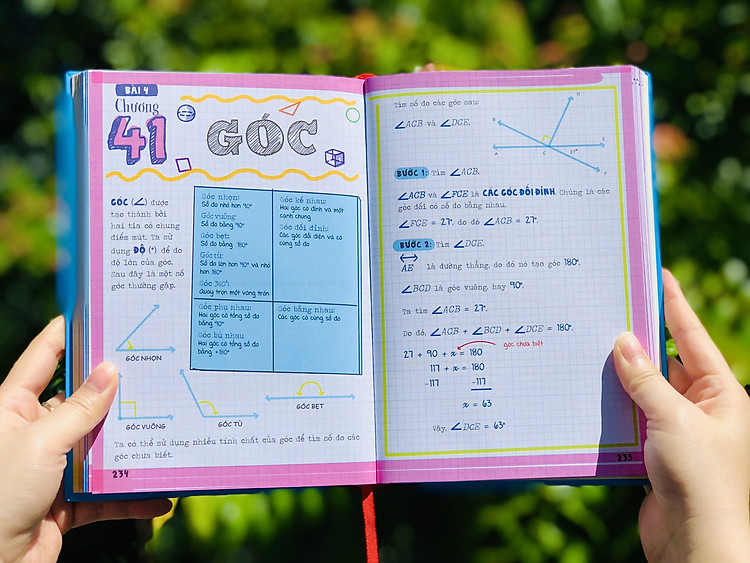 BÀI 4
Chương
41
GÓC
GÓC (∠) được
tạo thành bởi
hai tia có chung
điểm mút. Ta sử
dụng ĐỘ (°) để đo
độ lớn của góc.
Sau đây là một số
góc thường gặp.
Góc nhọn:
Số đo nhỏ hơn 90°
Góc vuông:
Số đo bằng 90°
Góc bẹt:
Số đo bằng 180°
Góc tù:
Số đo lớn hơn 90° và nhỏ
hơn 180°
Góc 360°:
Quay trọn một vòng tròn
Góc kề nhau:
Hai góc có đỉnh và một
cạnh chung
Góc đối đỉnh:
Các góc đối diện và có
cùng số đo
Góc phụ nhau
Hai góc có tổng số đo
bằng 90°
Góc bù nhau
Hai góc có tổng số đo
bằng 180°
Góc bằng nhau:
Các góc có cùng số đo
GÓC NHỌN
GÓC VUÔNG
GÓC TÙ
GÓC BẸT
Ta có thể sử dụng nhiều tính chất của góc để tìm số đo các
góc chưa biết.
234
Tìm số đo các góc sau:
∠ACB và ∠DCE.
D
B
A
C
E
27°
F
BƯỚC 1: Tìm ∠ACB.
∠ACB và ∠FCE là CÁC GÓC ĐỐI ĐỈNH. Chúng là các
góc đối có số đo bằng nhau.
∠FCE = 27°, do đó ∠ACB = 27°.
BƯỚC 2: Tìm ∠DCE.
AE là đường thẳng, do đó nó tạo góc 180°.
∠BCD là góc vuông, hay 90°.
Ta tìm ∠ACB = 27°.
Do đó, ∠ACB + ∠BCD + ∠DCE = 180°.
27 + 90 + x = 180
góc chưa biết
117 + x = 180
-117 -117
x = 63
Vậy, ∠DCE = 63°
235